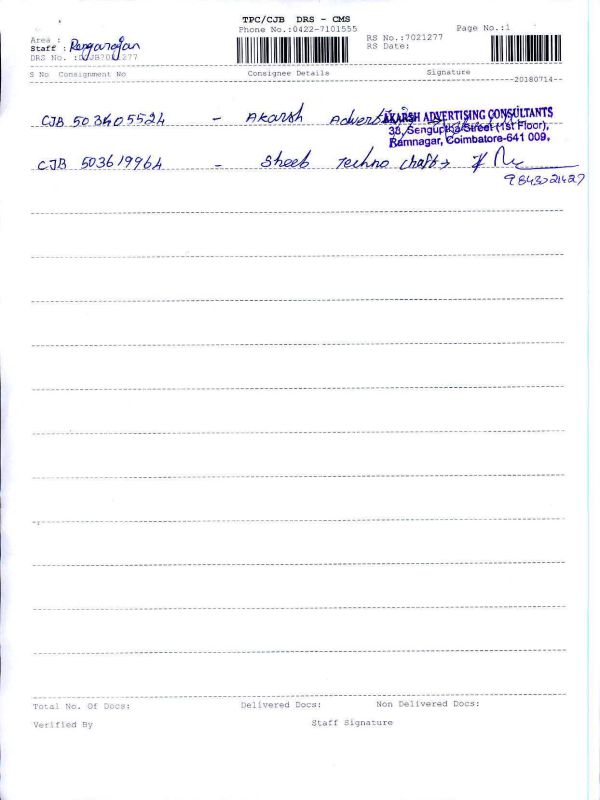 TPC/CJB DRS - CMS
Phone No.:0422-7101555
Page No.:1
Area :
Staff : Rengarajan
RS No.:7021277
RS Date:
DRS No. :
S No Consignment No Consignee Details Signature
20180714
CJB 503405524 - Akarsh
AKARSH ADVERTISING CONSULTANTS
38, Senguptha Street (1st Floor),
Ramnagar, Coimbatore-641 009.
CJB 503619964 - Sheeb Techno
9843021427
Total No. Of Docs: Delivered Docs: Non Delivered Docs:
Verified By Staff Signature